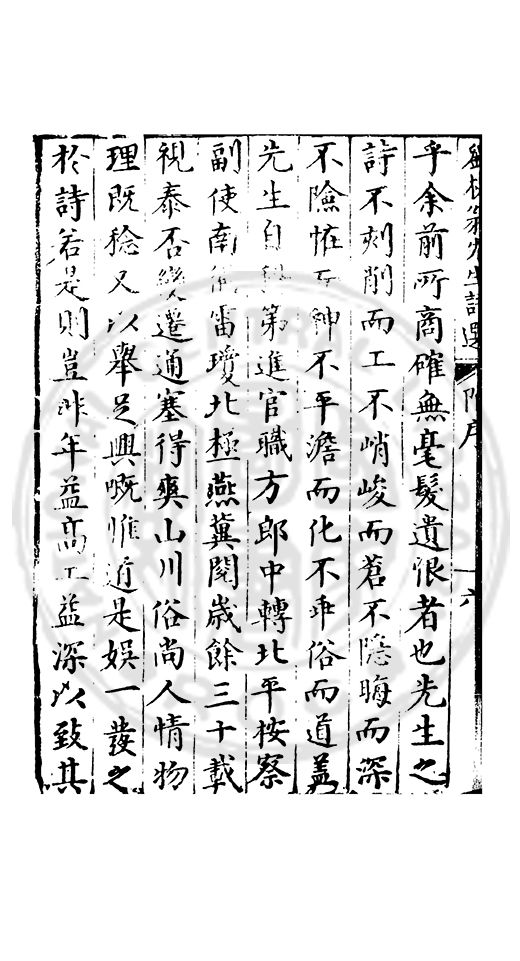 乎余前所商確無毫髮遺恨者也先生之
詩不刻削而工不峭峻而蒼不隱晦而深
不險恠而神不平澹而化不乖俗而道蓋
先生自科第進官職方郎中轉北平按察
副使南氐雷瓊北極燕冀閱歲餘三十載
視泰否變遷通塞得喪山川俗尚人情物
理既稔又以舉足興嘅惟道是娛一發之
於詩若是則豈昨年益高工益深以致其
先生詩選 附序 六